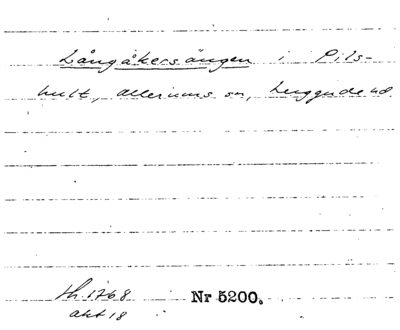 Långåkersängen i Pils-
hult, Allerums sn, Luggude hd
th. 1768 Nr 5200.
akt 18